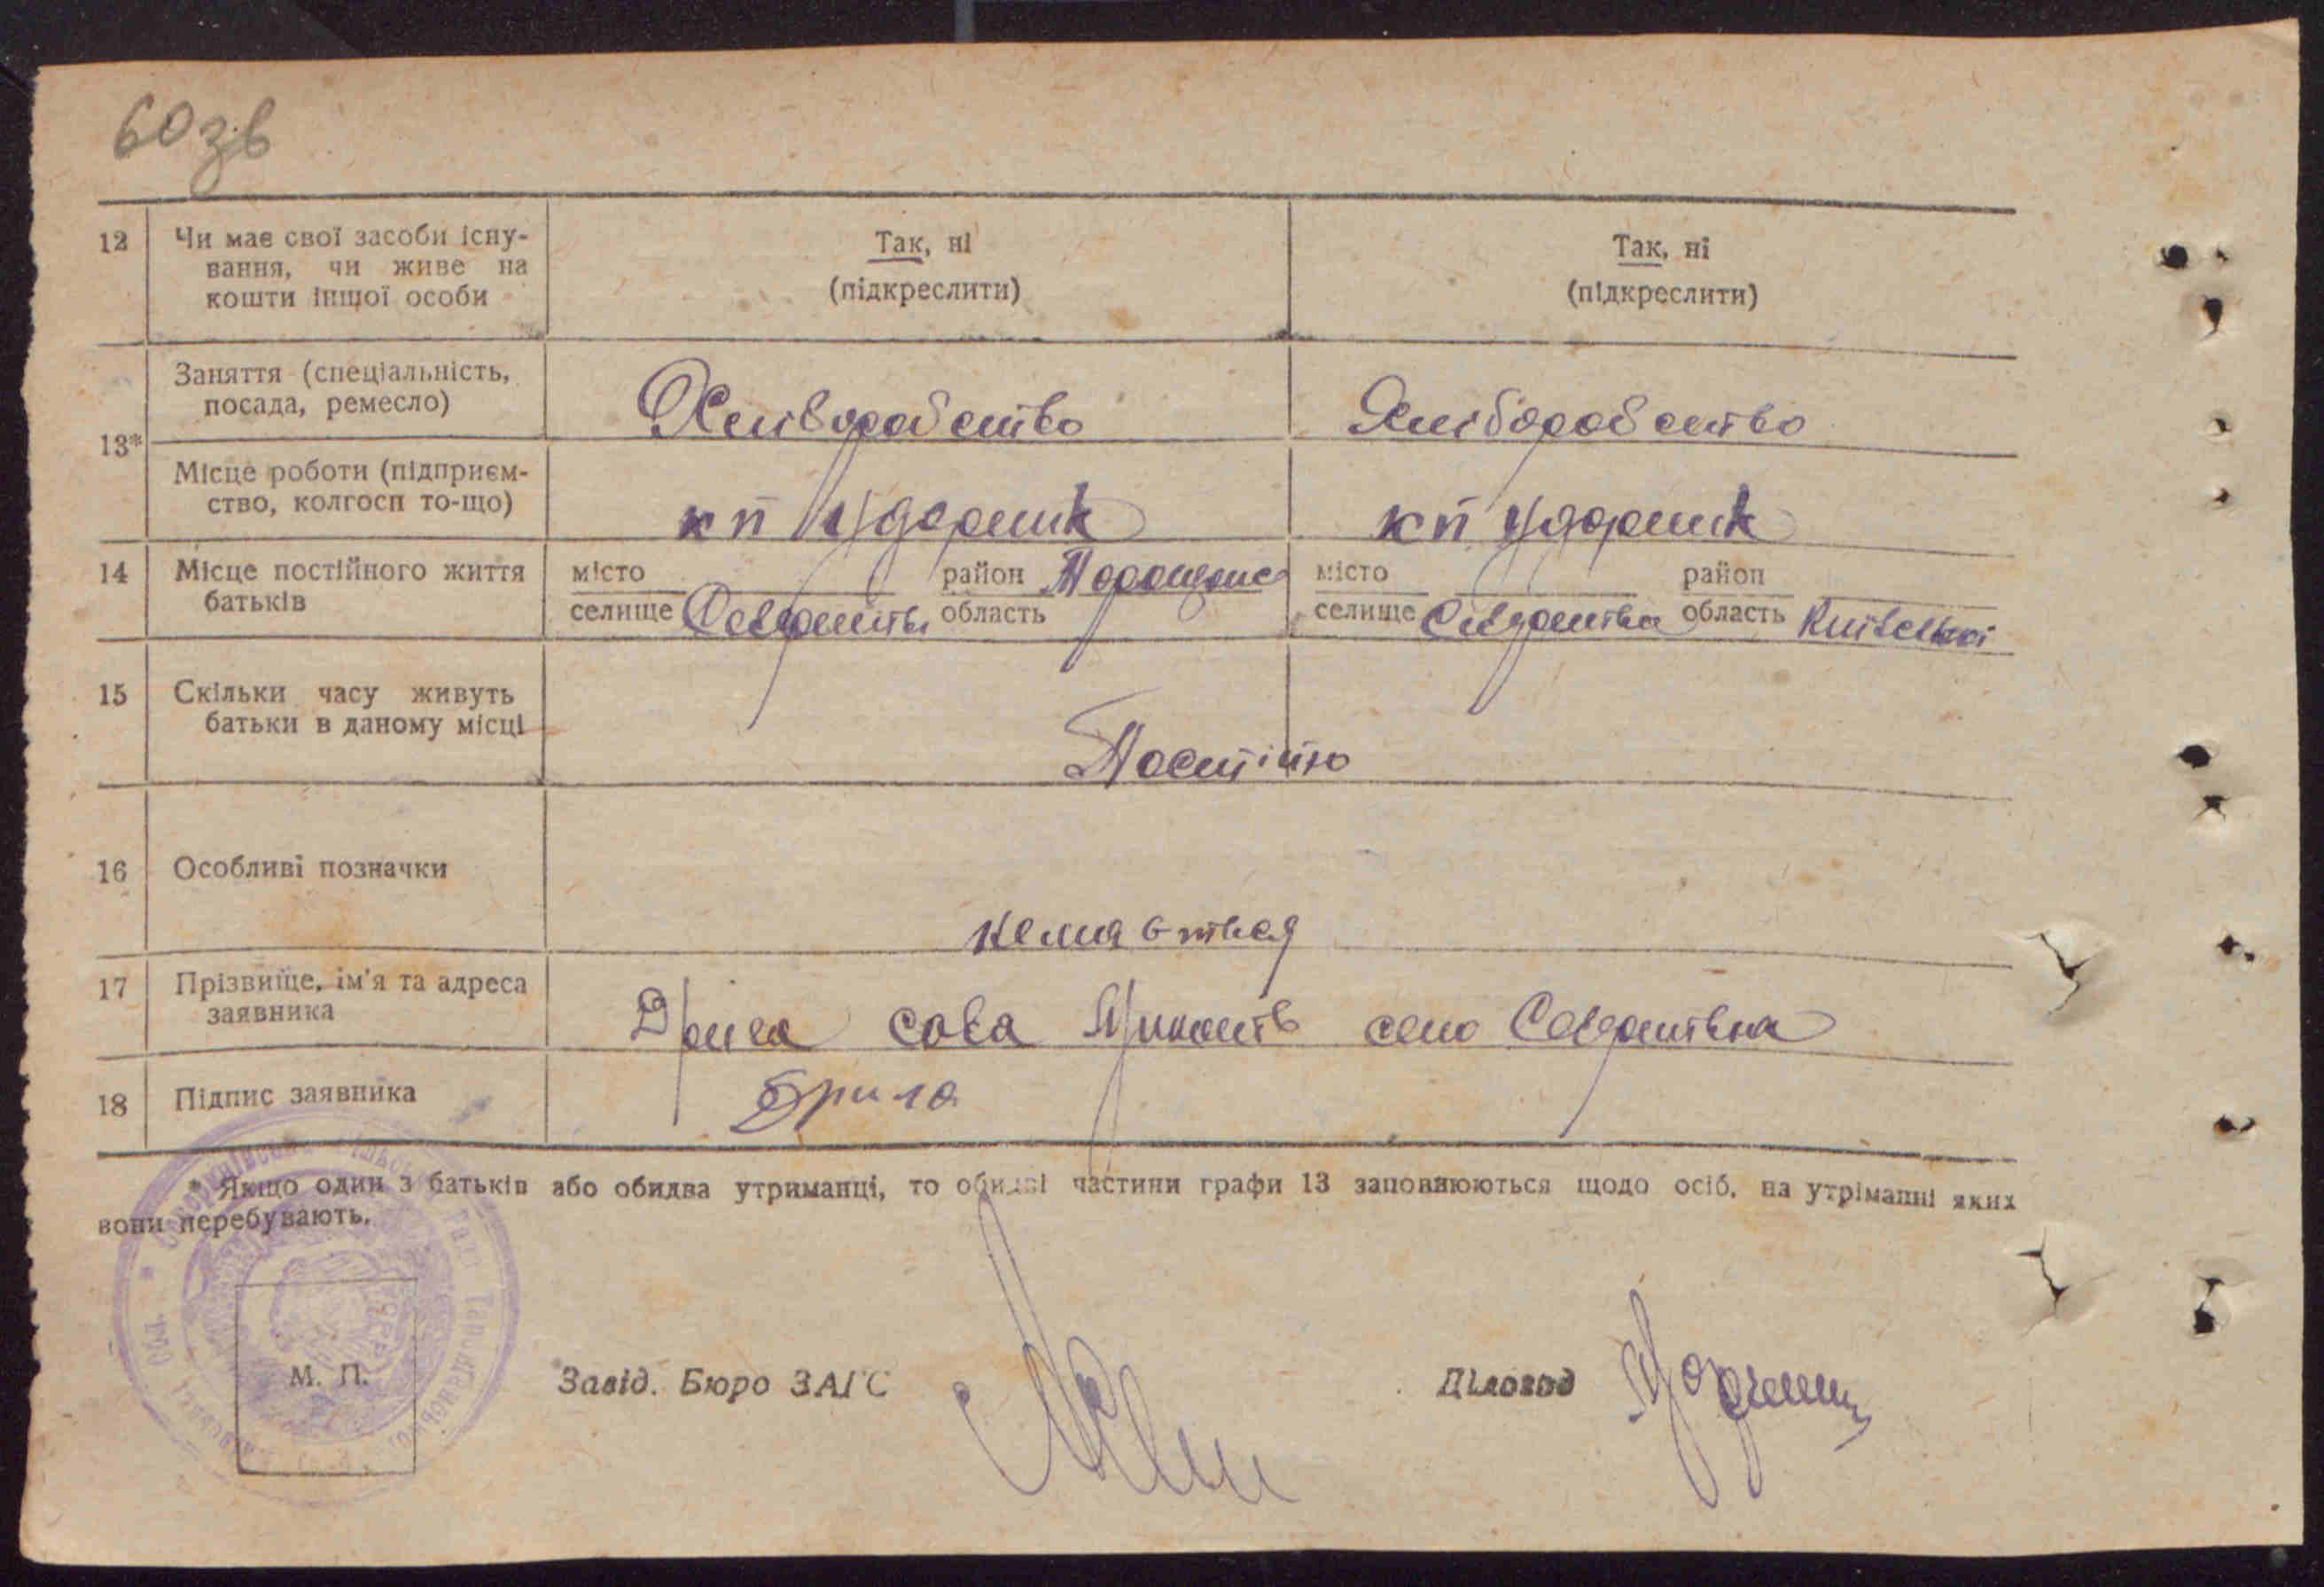 60зв
12 Чи має свої засоби існу- Так, ні Так, ні
вання, чи живе на (підкреслити) (підкреслити)
кошти іншої особи
Заняття (спеціальність,
посада, ремесло) Хліборобство Хліборобство
13*
Місце роботи (підприєм-
ство, колгосп то-що) кп Ударник кп Ударник
14 Місце постійного життя місто район місто район
батьків селище область селище область Київської
15 Скільки часу живуть
батьки в даному місці Постійно
16 Особливі позначки
17 Прізвище, ім'я та адреса
заявника сава село
18 Підпис заявника
* Якщо один з батьків або обидва утриманці, то обидві частини графи 13 заповнюються щодо осіб, на утріманні яких
вони перебувають.
М. П. Завід. Бюро ЗАГС Діловод